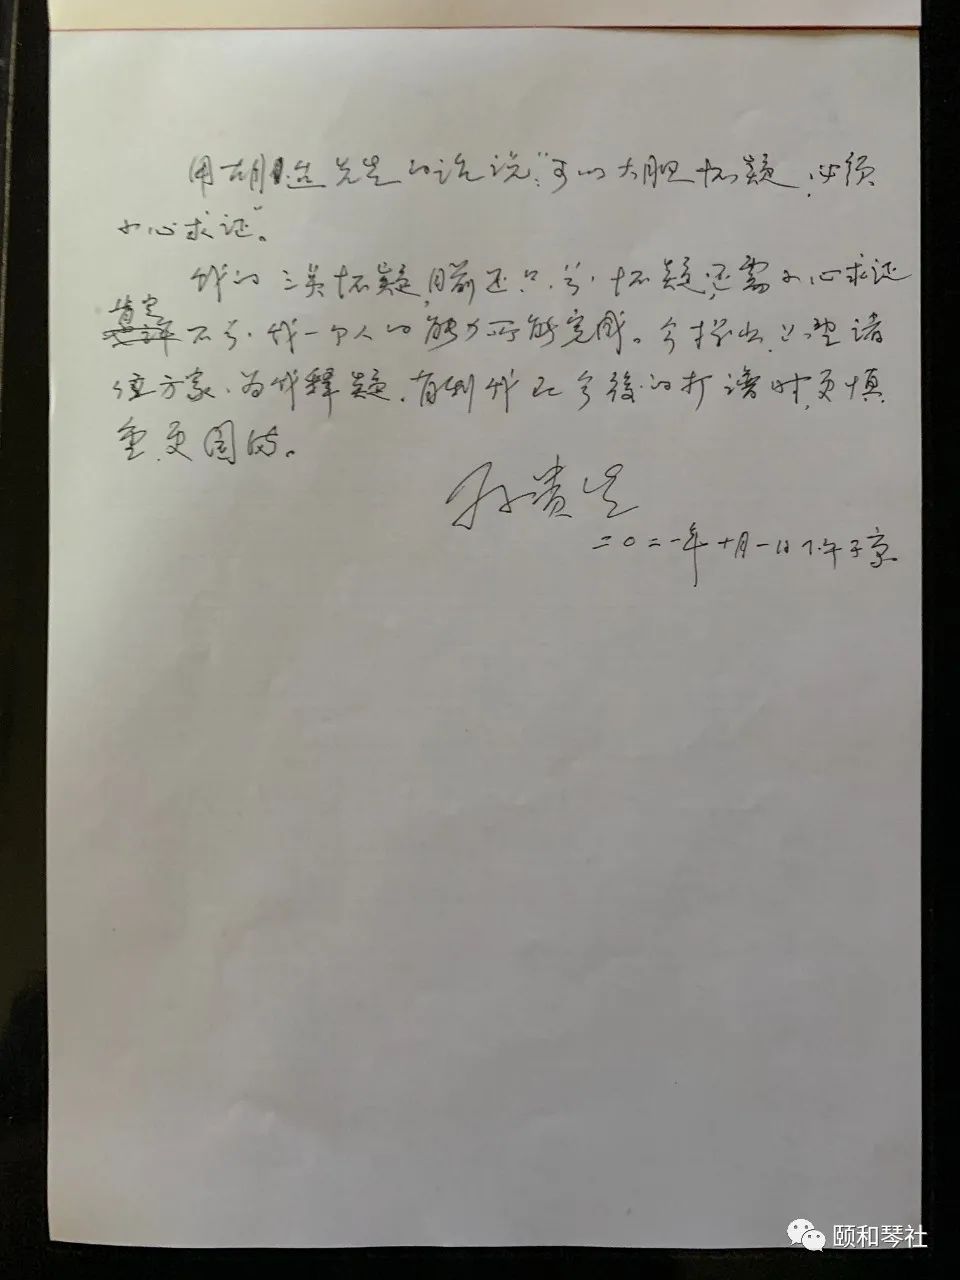 用胡适先生的话说:“可以大胆怀疑,必须
小心求证”。
我的三类怀疑,目前还只是怀疑,还需小心求证
肯定
不是我一个人的能力所能完成。今提出,只望诸
位方家为我释疑,有利我在今後的打谱时,更慎
重,更圆满。
孙贵生
二〇二一年十月一日下午于京
颐和琴社